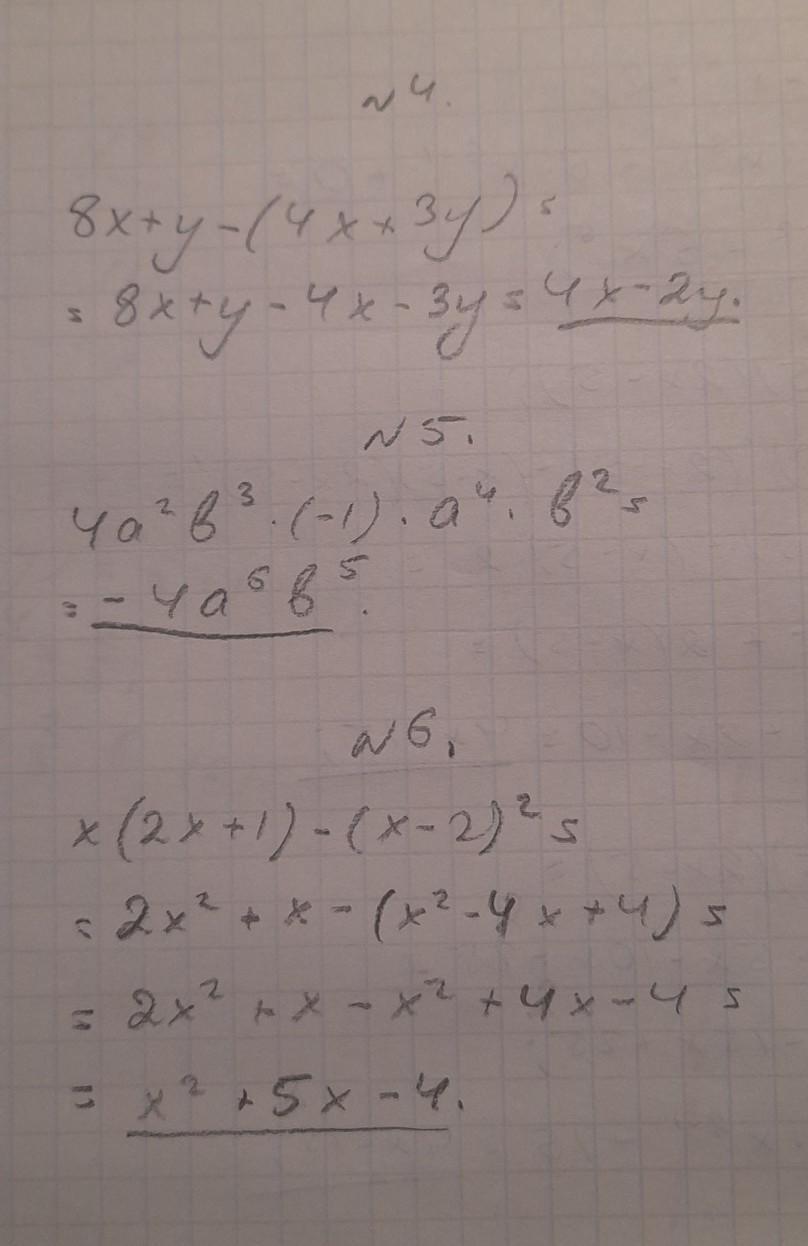 №4.
8x+y-(4x+3y)=
=8x+y-4x-3y=4x-2y.
№5.
4a²b³·(-1)·a⁴·b²=
=-4a⁶b⁵.
№6.
x(2x+1)-(x-2)²=
=2x²+x-(x²-4x+4)=
=2x²+x-x²+4x-4=
=x²+5x-4.